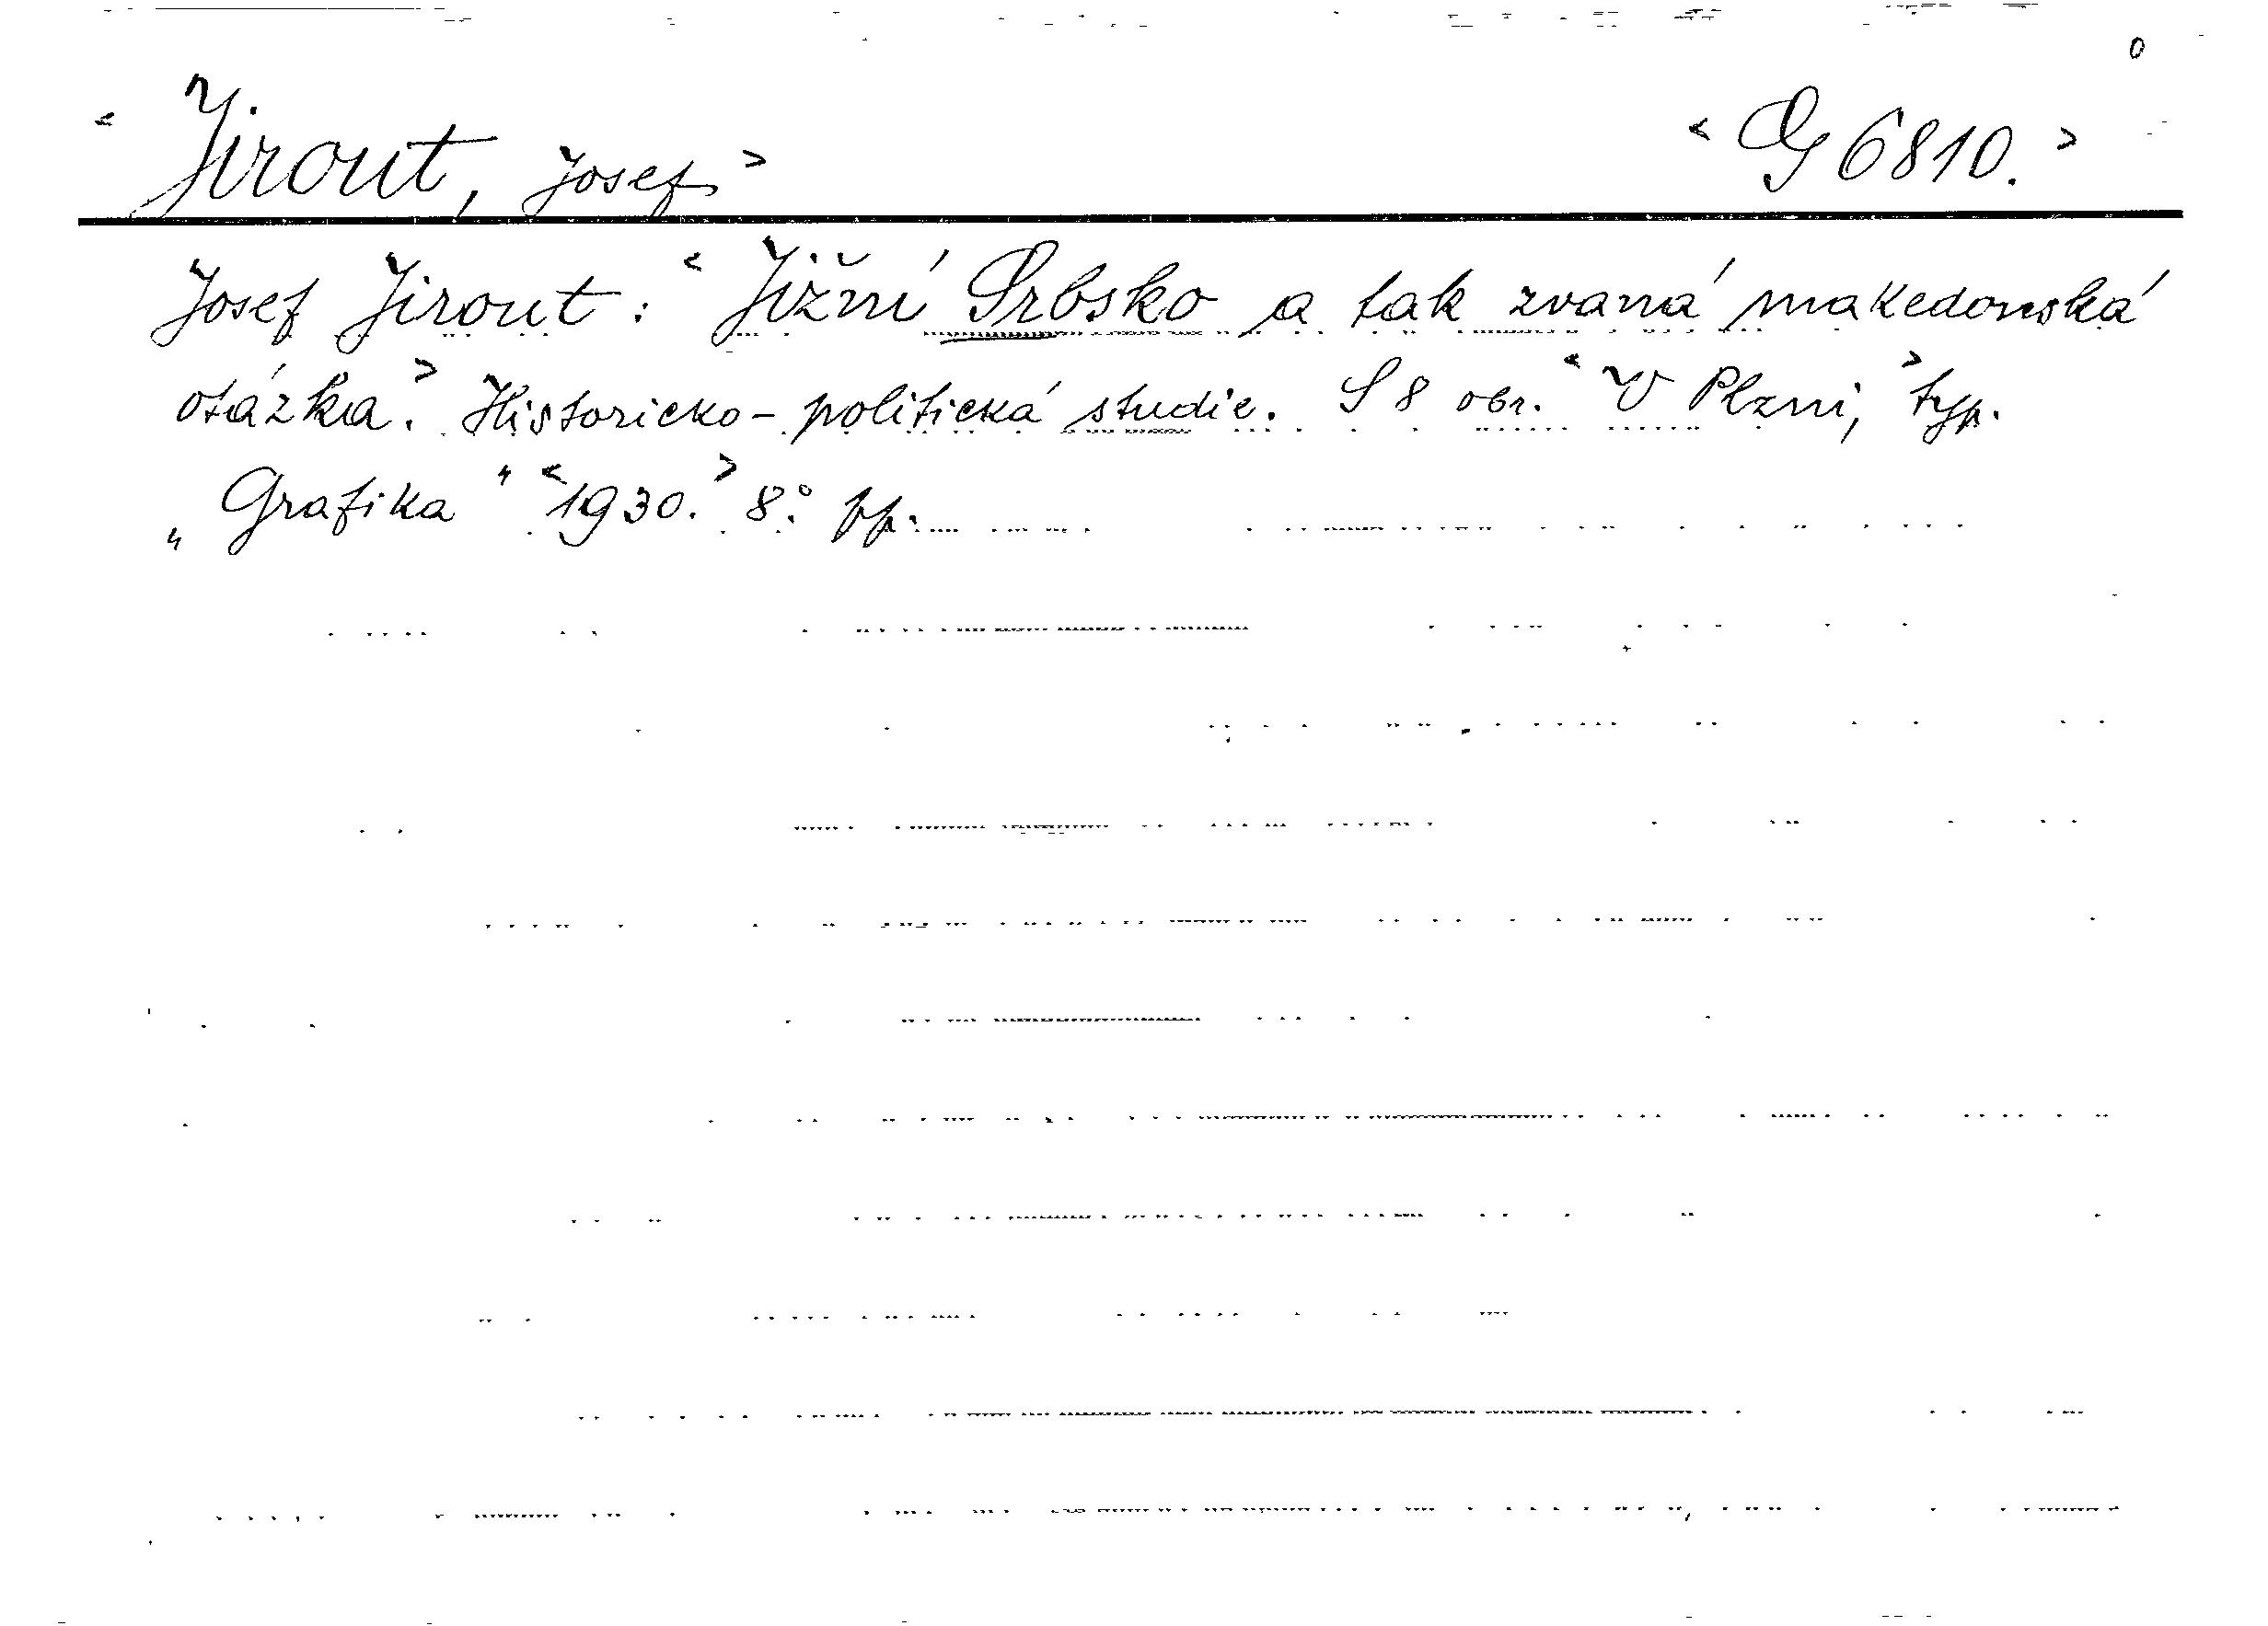 < Jirout, Josef > < G 6810. >
Josef Jirout: < Jižní Srbsko a tak zvaná makedonská
otázka. > Historicko-politická studie. S 8 obr. < V Plzni, > typ.
„Grafika" < 1930. > 8°. pp.